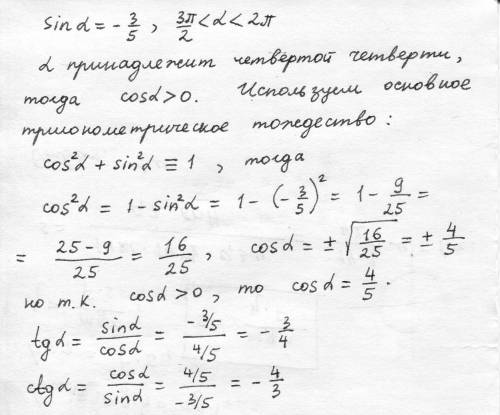 sinα = - 3/5 , 3π/2 < α < 2π
α принадлежит четвёртой четверти,
тогда cosα > 0. Используем основное
тригонометрическое тождество :
cos²α + sin²α ≡ 1 , тогда
cos²α = 1 - sin²α = 1 - (- 3/5)² = 1 - 9/25 =
= (25 - 9)/25 = 16/25 , cosα = ± √(16/25) = ± 4/5
но т.к. cosα > 0, то cosα = 4/5 .
tgα = sinα/cosα = (- 3/5)/(4/5) = - 3/4
ctgα = cosα/sinα = (4/5)/(-3/5) = - 4/3